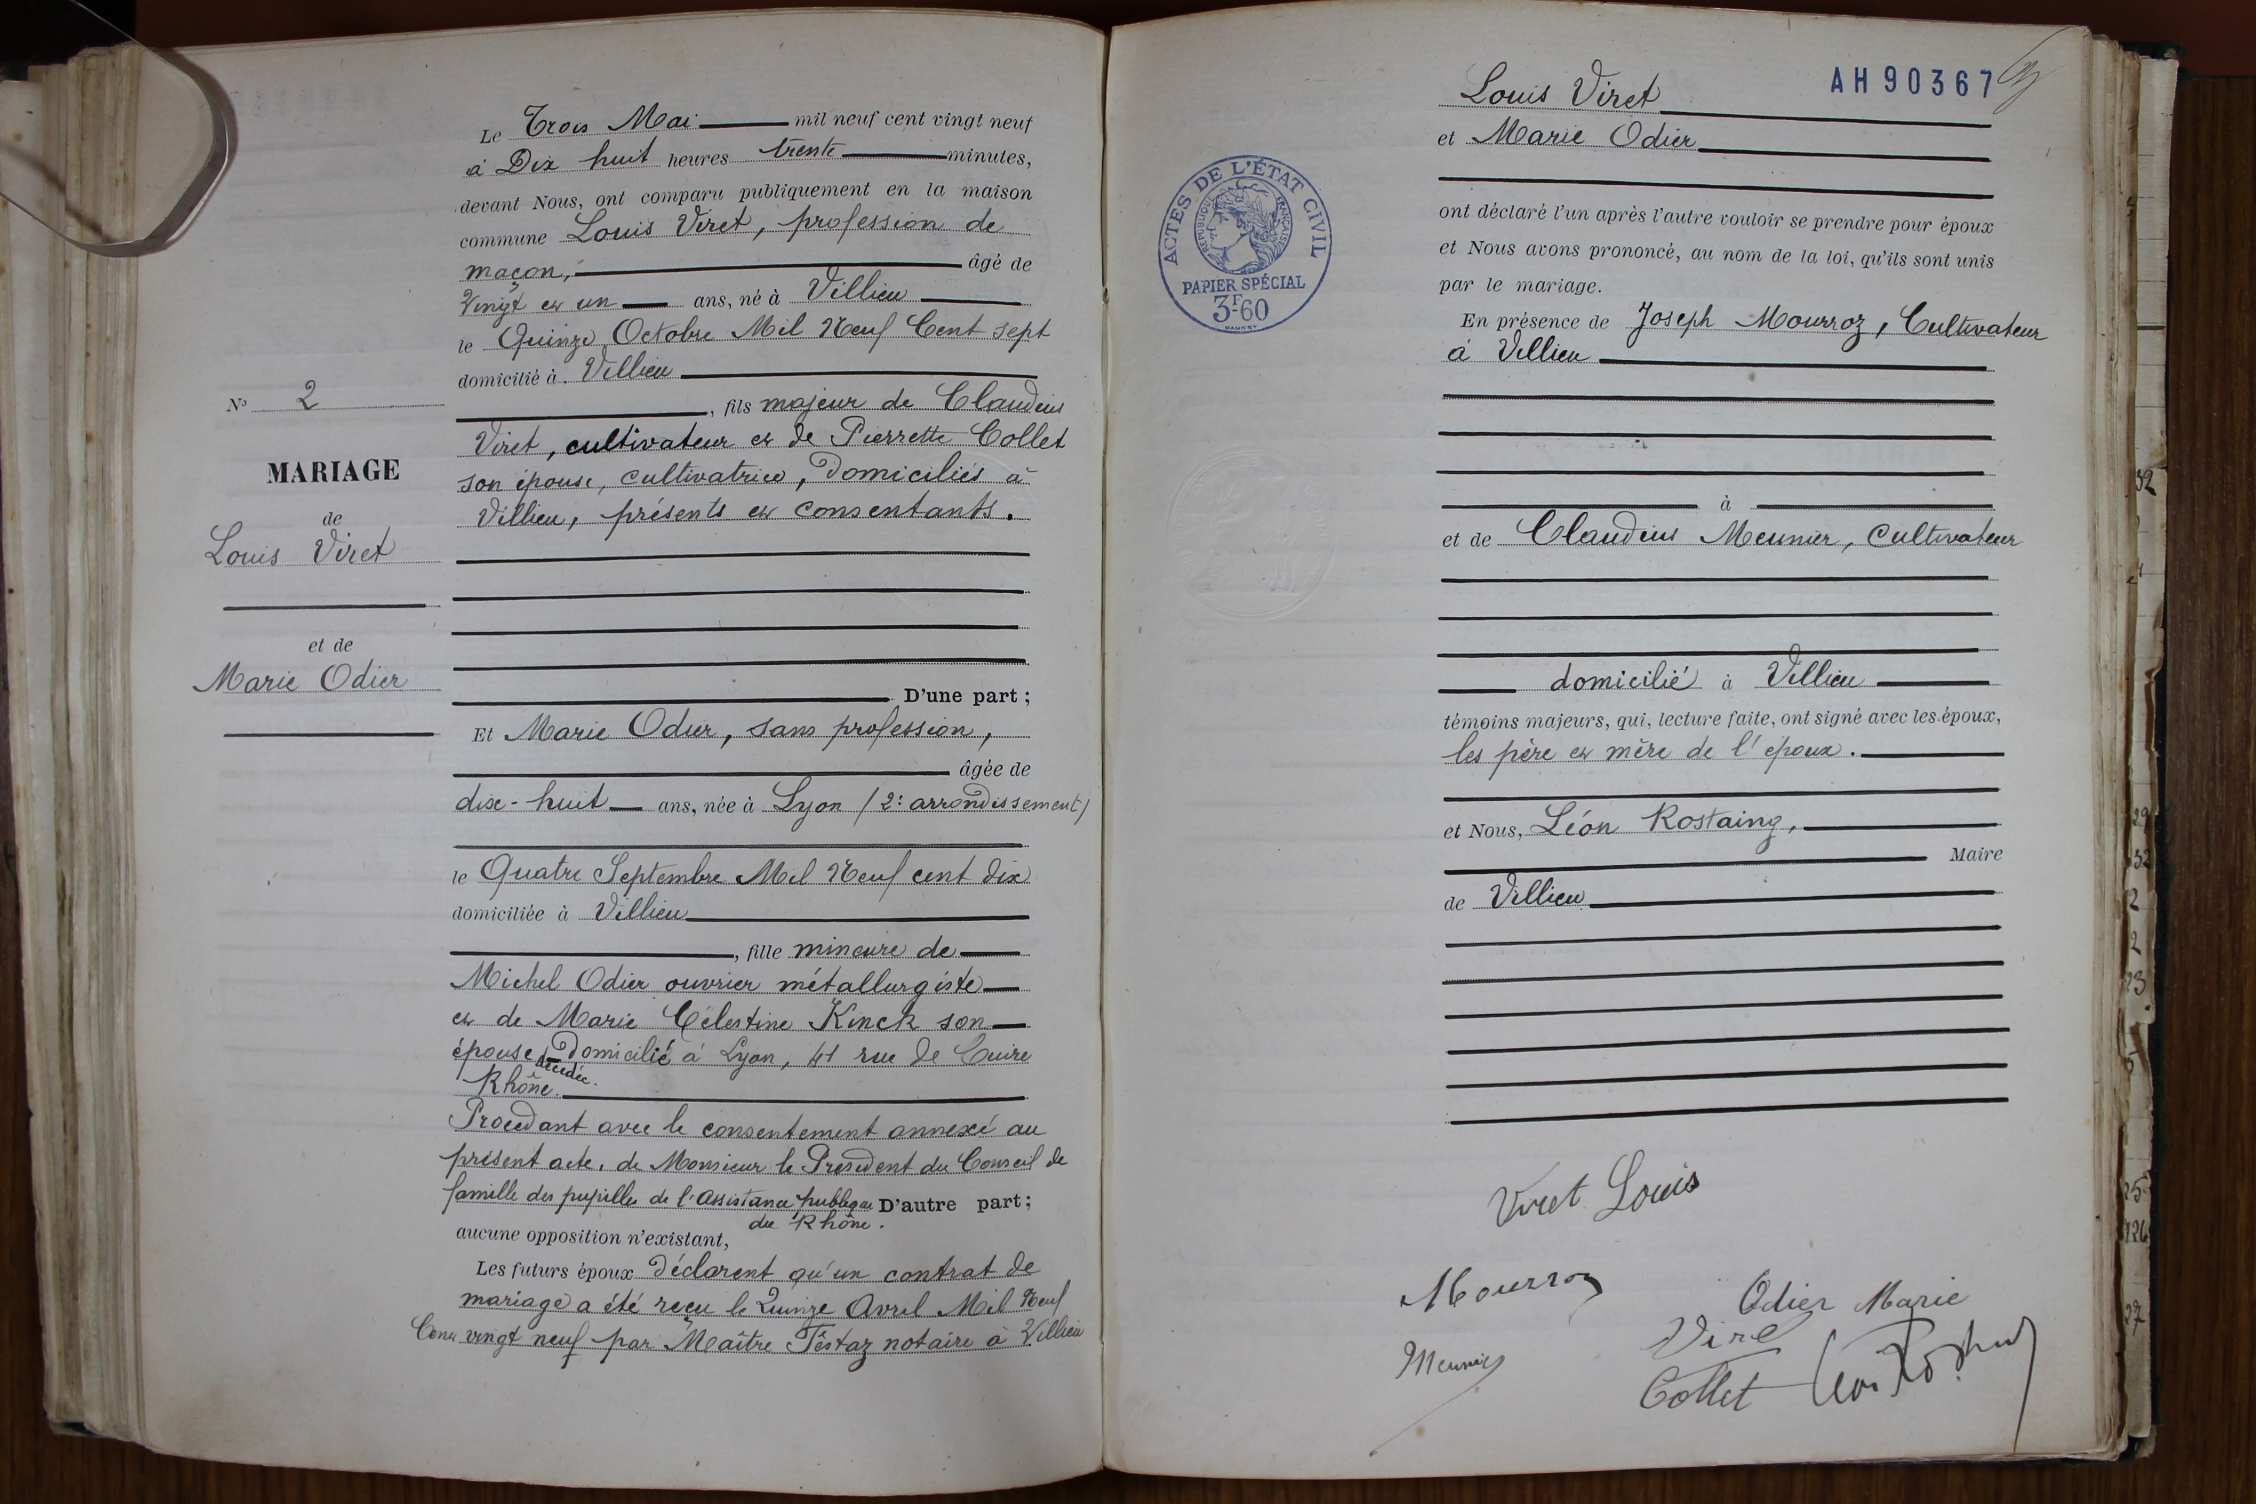 Le Trois Mai mil neuf cent vingt neuf
à Dix huit heures trente minutes,
devant Nous, ont comparu publiquement en la maison
commune Louis Viret, profession de
maçon, âgé de
Vingt et un ans, né à Villieu
le Quinze Octobre Mil Neuf Cent sept
domicilié à Villieu
, fils majeur de Claudius
Viret, cultivateur et de Pierrette Collet
son épouse, cultivatrice, domiciliés à
Villieu, présents et consentants.
D'une part ;
Et Marie Odier, sans profession,
âgée de
dix-huit ans, née à Lyon (2e arrondissement)
le Quatre Septembre Mil Neuf cent dix
domiciliée à Villieu
, fille mineure de
Michel Odier ouvrier métallurgiste
et de Marie Célestine Kinck son
épouse décédée, domicilié à Lyon, 41 rue de Cuire
Rhône.
Procédant avec le consentement annexé au
présent acte, de Monsieur le Président du Conseil de
famille des pupilles de l'Assistance publique D'autre part ;
du Rhône.
aucune opposition n'existant,
Les futurs époux déclarent qu'un contrat de
mariage a été reçu le Quinze Avril Mil Neuf
Cent vingt neuf par Maître Têstaz notaire à Villieu
No 2
MARIAGE
de
Louis Viret
et de
Marie Odier
AH 90367
Louis Viret
et Marie Odier
ont déclaré l'un après l'autre vouloir se prendre pour époux
et Nous avons prononcé, au nom de la loi, qu'ils sont unis
par le mariage.
En présence de Joseph Mourroz, Cultivateur
à Villieu
à
et de Claudius Meunier, Cultivateur
domicilié à Villieu
témoins majeurs, qui, lecture faite, ont signé avec les époux,
les père et mère de l'époux.
et Nous, Léon Rostaing,
Maire
de Villieu
ACTES DE L'ÉTAT CIVIL
RÉPUBLIQUE FRANÇAISE
PAPIER SPÉCIAL
3F-60
Viret Louis
Mourroz
Odier Marie
Viret
Meunier
Collet
32
29
32
2
2
23
5
25
126
27